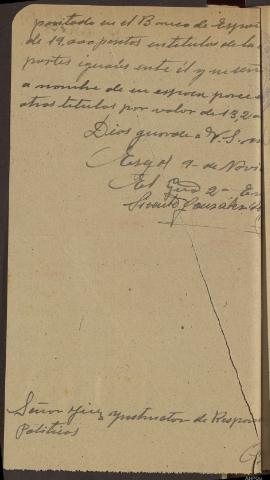 positado en el Banco de Españ
de 19,000 pesetas en titulos de la
partes iguales entre él y su señ
a nombre de su esposa posee
otros titulos por valor de 13,2
Dios guarde a V.S. m
9 de Novi
El 2º En
Gonzalez
Señor Juez Ynstructor de Respon
Politicos